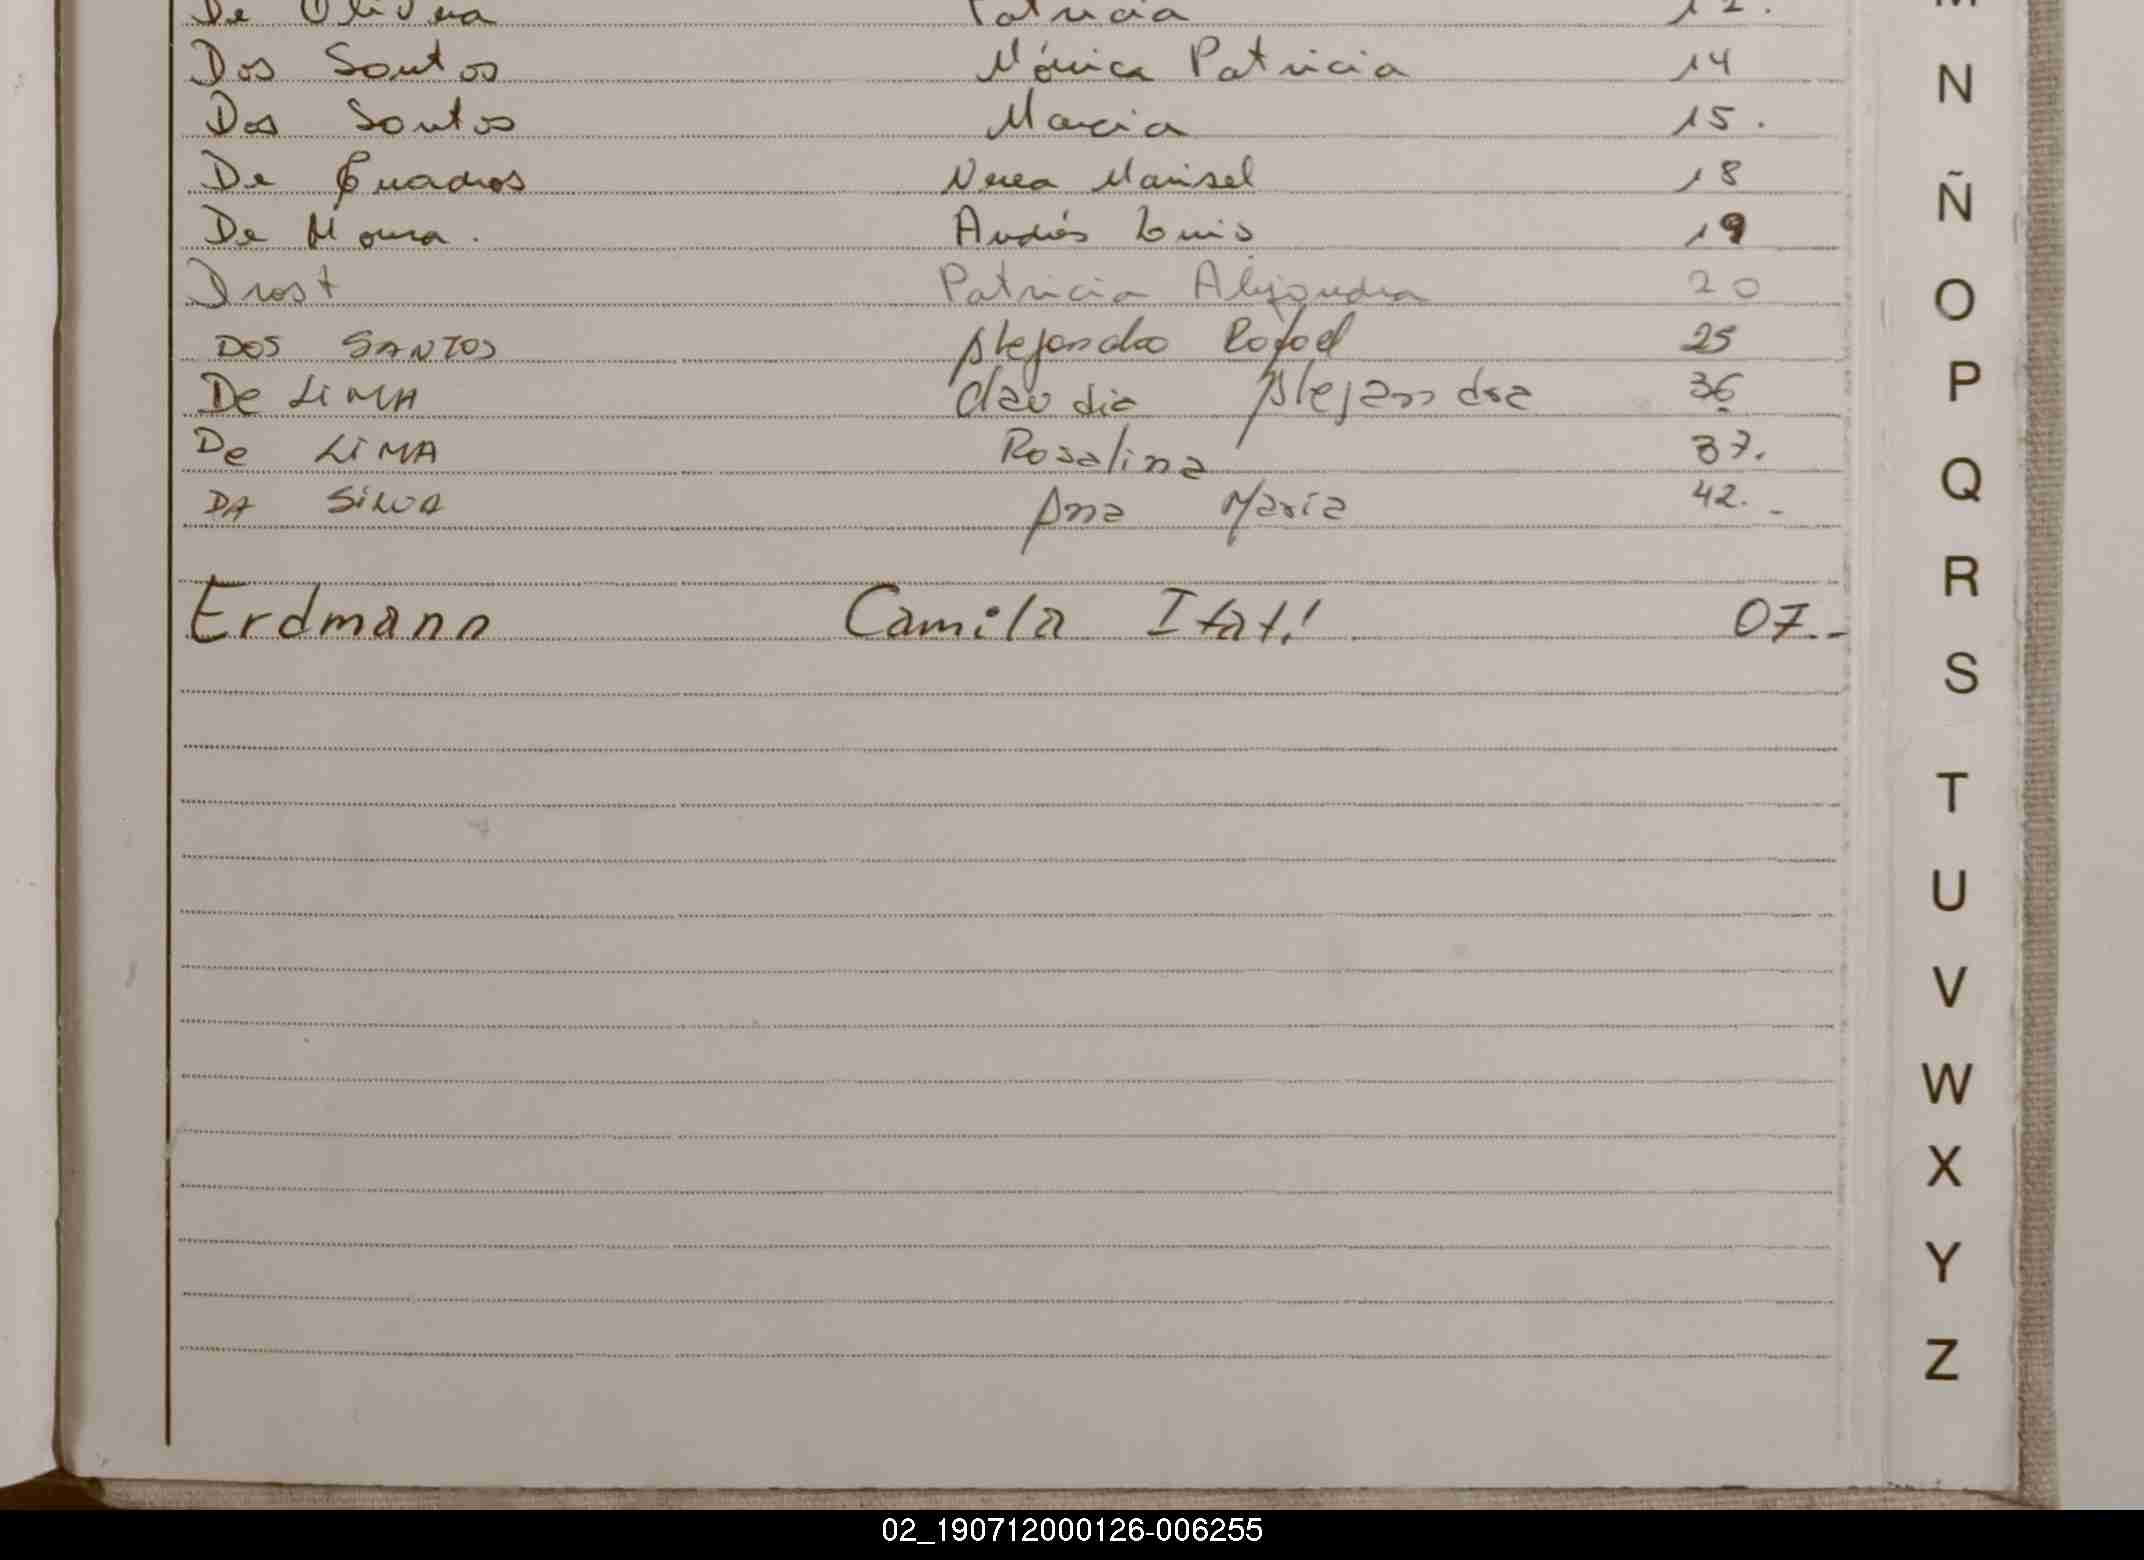 De Olivera Patricia 12.
Dos Santos Mónica Patricia 14
Dos Santos Marcia 15.
De Cuadros Nerea Marisel 18
De Moura. Andrés Luis 19
Drost Patricia Alejandra 20
DOS SANTOS Alejandro Rafael 25
De LiMA Claudia Alejandra 36
De LiMA Rosalina 37.
DA SiLVA Ana María 42.-
Erdmann Camila Itatí 07.-
M
N
Ñ
O
P
Q
R
S
T
U
V
W
X
Y
Z
02_190712000126-006255